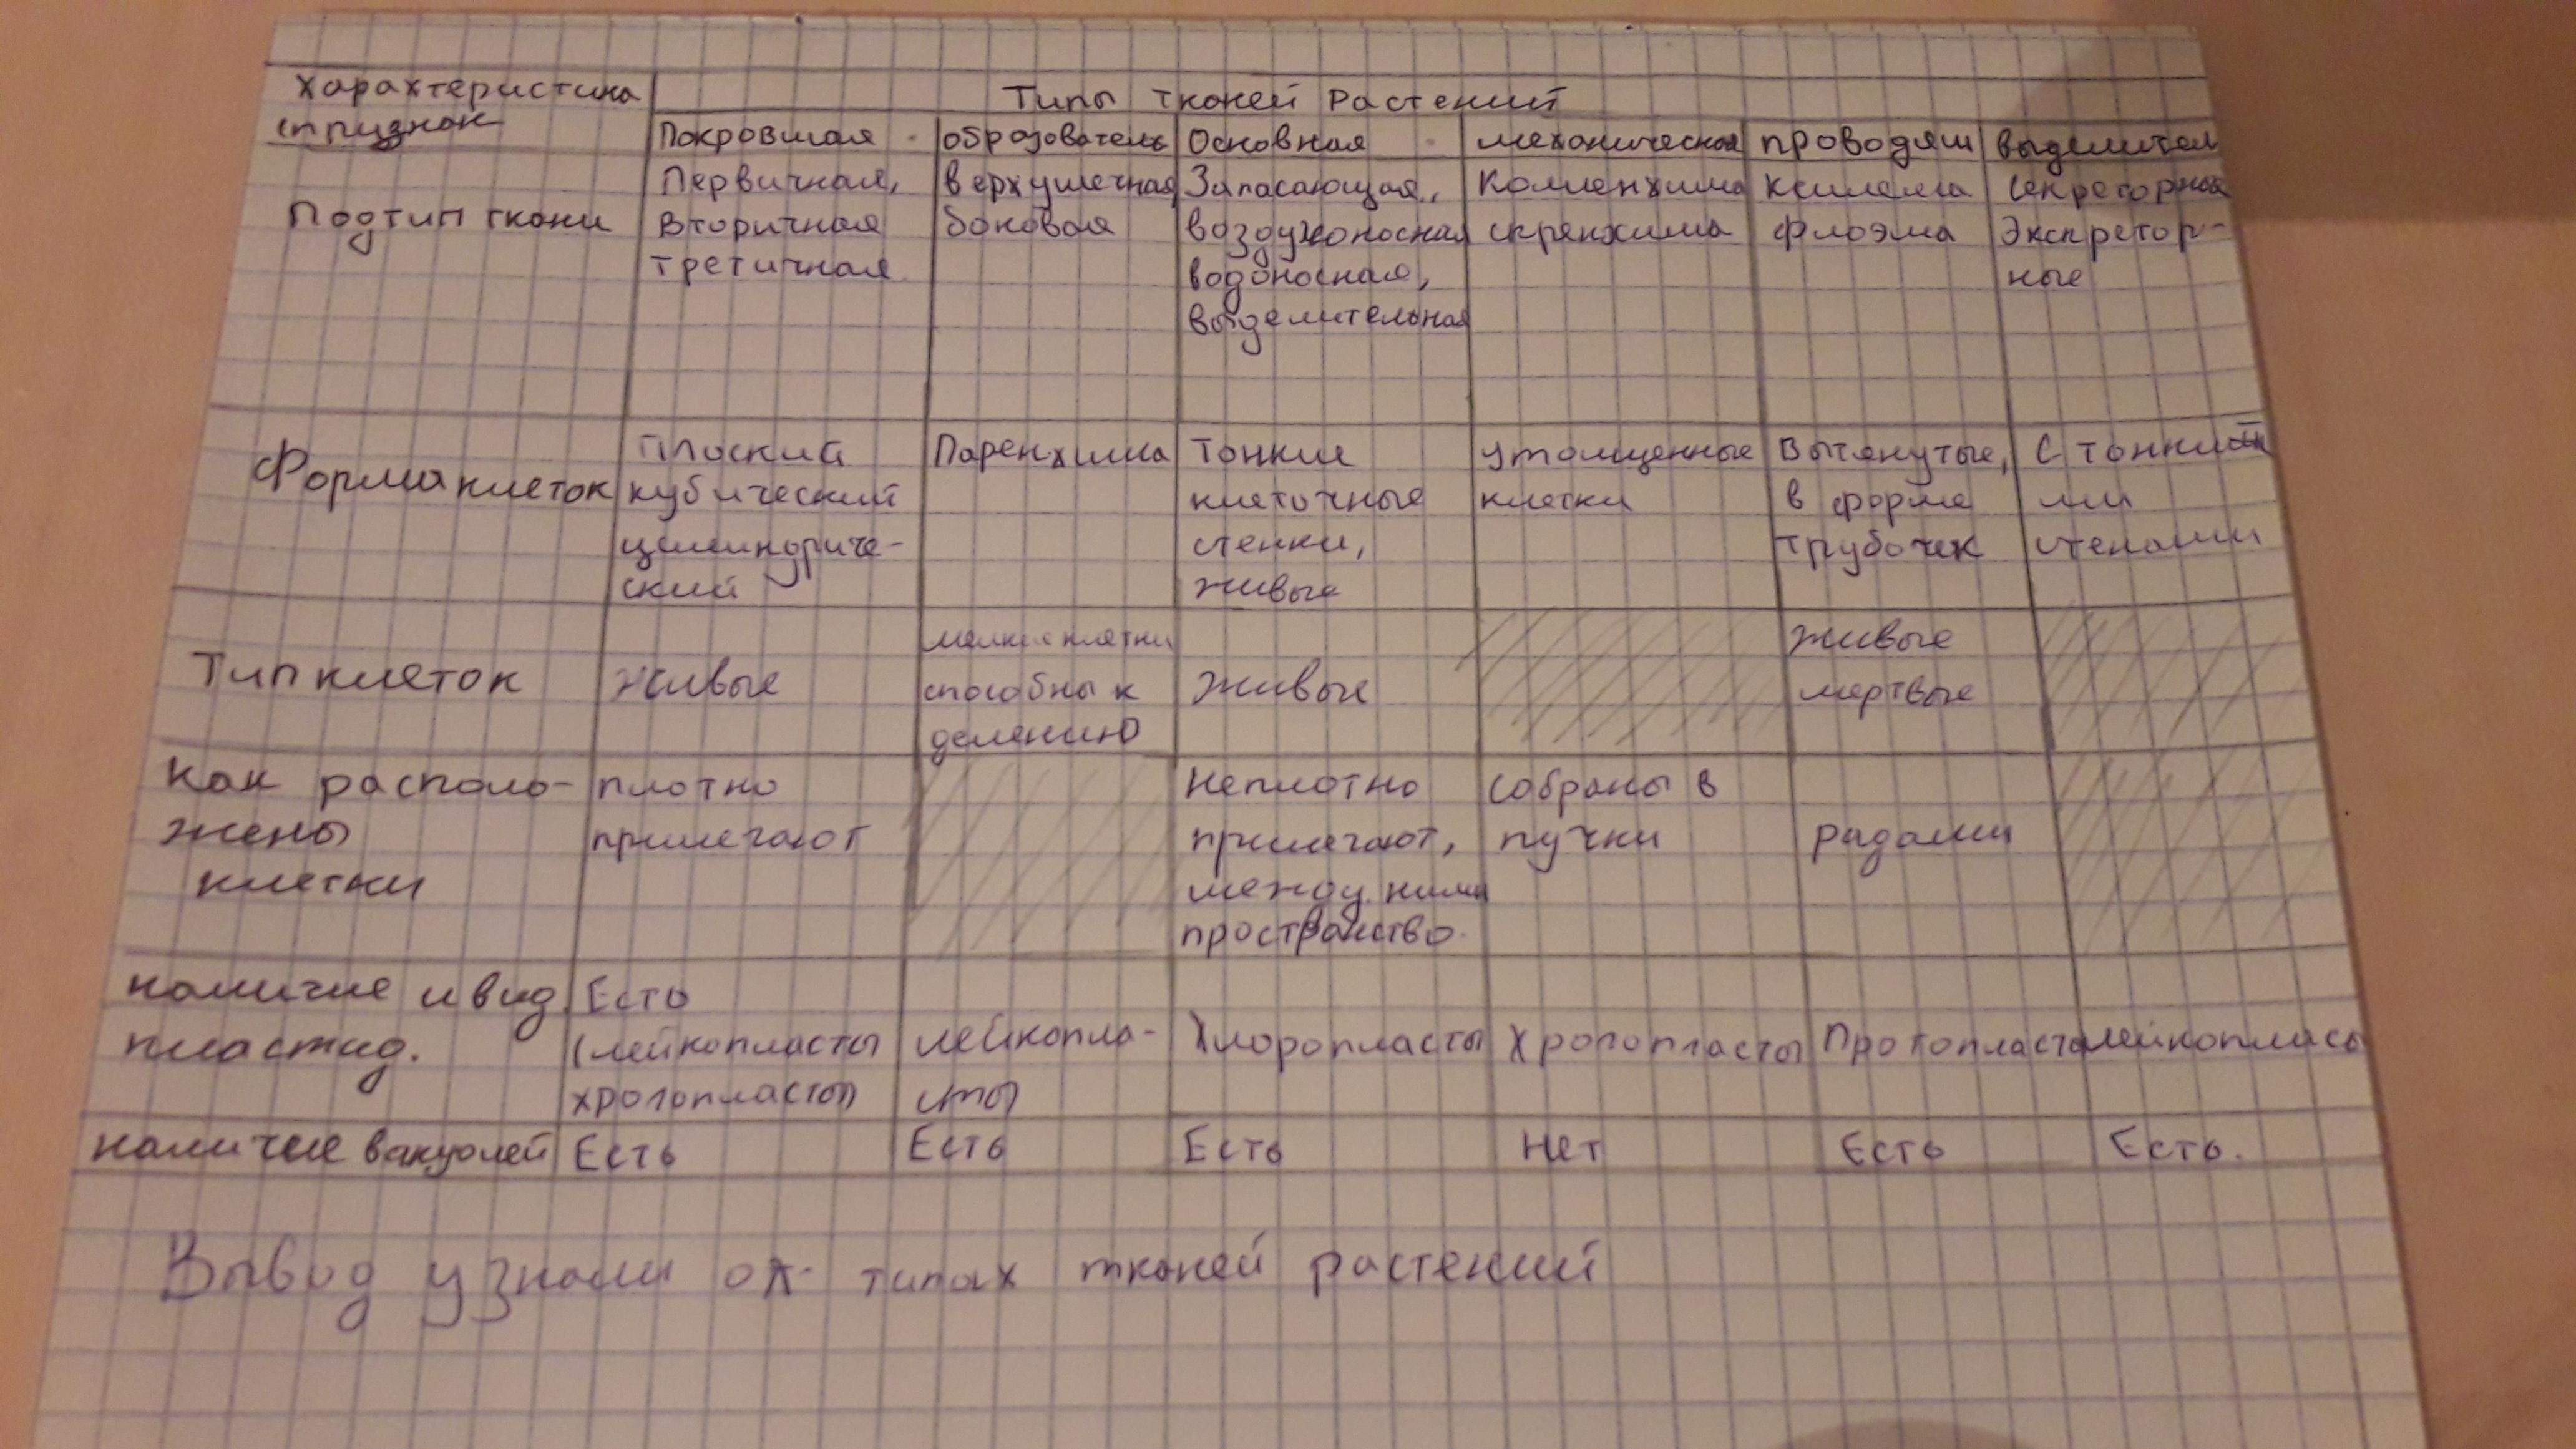 Характеристика
Типы тканей растений
признак
Покровная
образователь
Основная
механическая
проводящ
выделител
Подтип ткани
Первичная,
Вторичная
третичная
верхушечная
боковая
Запасающая,
воздухоносная
водоносная,
выделительная
Колленхима
скренхима
ксилема
флоэма
секреторная
Экспретор-
ные
Форма клеток
Плоский
кубический
цилиндриче-
ский
Паренхима
Тонкие
клеточные
стенки,
живые
утолщенные
клетки
Вытянутые,
в форме
трубочек
С тонки
ми
стенами
Тип клеток
живые
мелкие клетки
способны к
делению
живые
живые
мертвые
Как располо-
жены
клетки
плотно
прилегают
Неплотно
прилегают,
между ними
пространство.
собраны в
пучки
рядами
наличие и вид
пластид.
Есть
(лейкопласты
хромопласты)
лейкопла-
сты
Хлоропласты
Хромопласты
Протопласты
лейкопласы
наличие вакуолей
Есть
Есть
Есть
Нет
Есть
Есть.
Вывод узнали о типах тканей растений